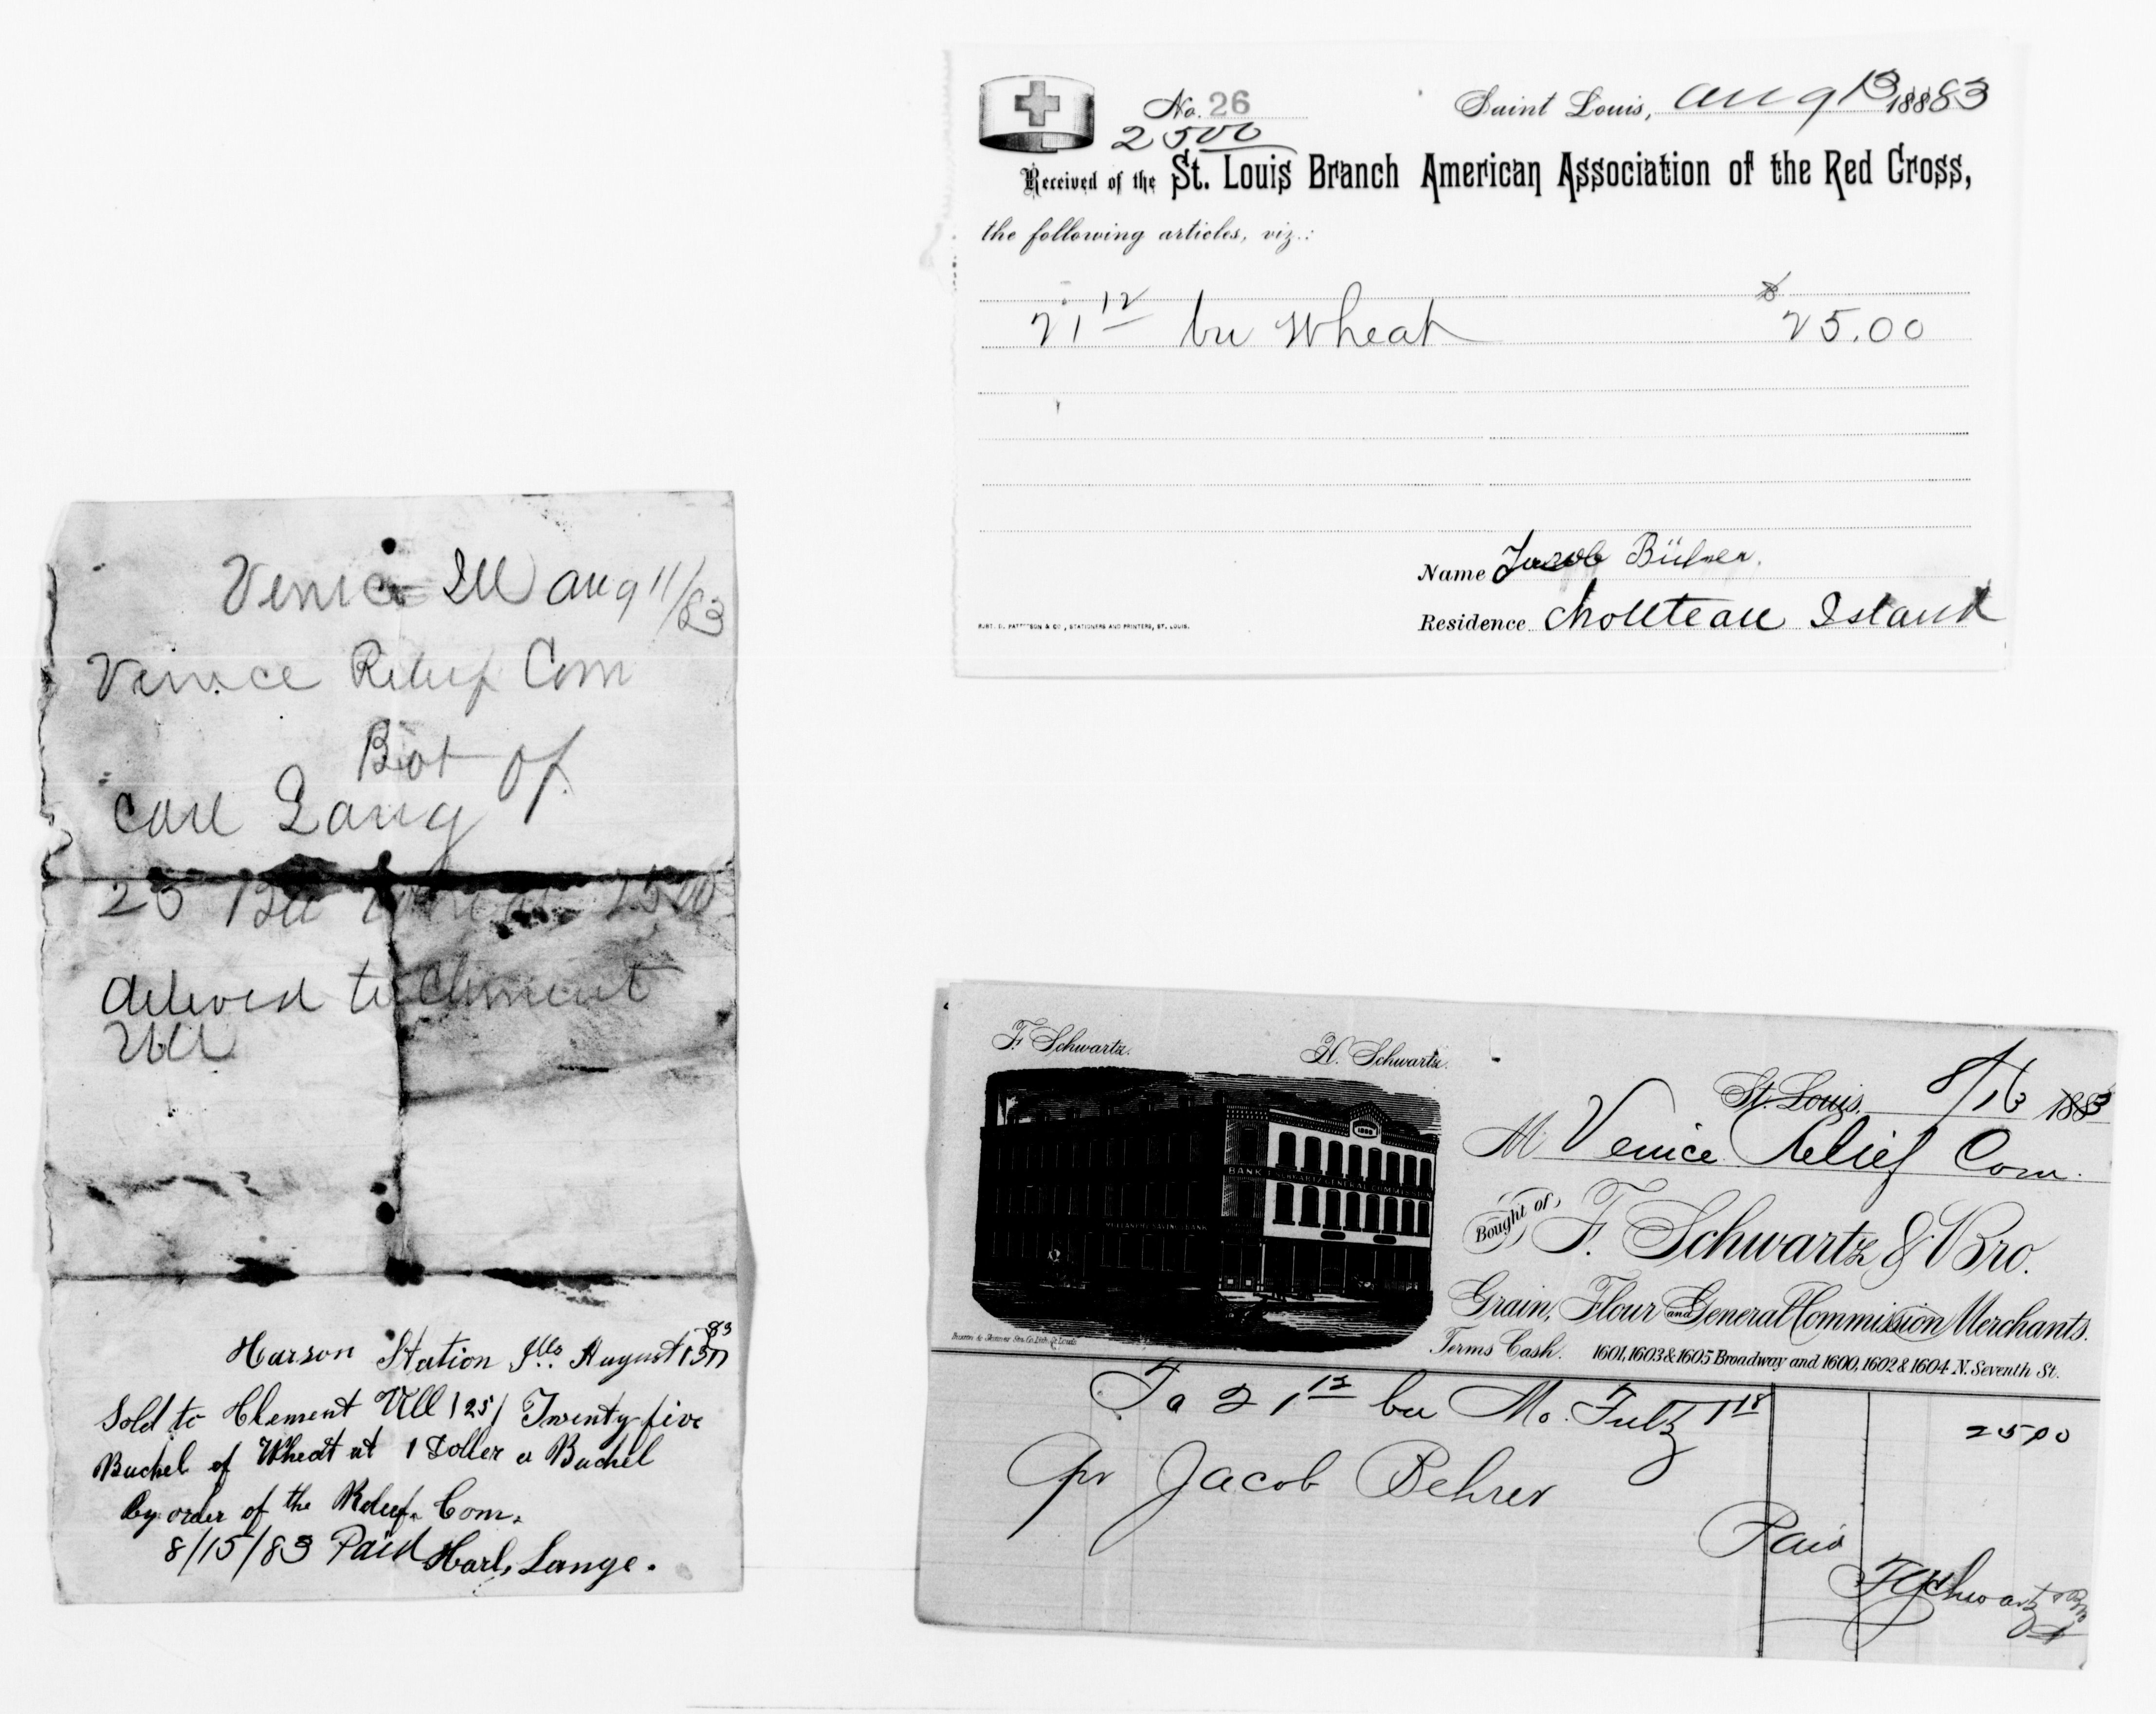 Venice Ill Aug 11/83
Venice Relief Com
Bot of
Carl Lang
25 Bu Wheat 25 00
deliverd to Clement
Ull
Harson Station Ills. August 13th 83
Sold to Clement Ull (25) Twenty five
Buchel of Wheat at 1 Doller a Buchel
by order of the Relief. Com.
8/15/83 Paid Karl, Lange.
No. 26
Saint Louis, Aug 13 1883
2500
Received of the St. Louis Branch American Association of the Red Cross,
the following articles, viz.:
21 12 bu Wheat $ 25.00
Name Jacob
Residence Chouteau Island
& CO., STATIONERS AND PRINTERS, ST. LOUIS.
F. Schwartz. H. Schwartz.
St. Louis, 8/13 1883
M Venice Relief Com.
Bought of, F. Schwartz & Bro.
Grain, Flour and General Commission Merchants.
Terms Cash. 1601, 1603 & 1605 Broadway and 1600, 1602 & 1604 N. Seventh St.
BANK
To 21 12 bu Mo. Fultz 1 18 25 00
pr Jacob Behrer
Paid
F Schwartz & Bro